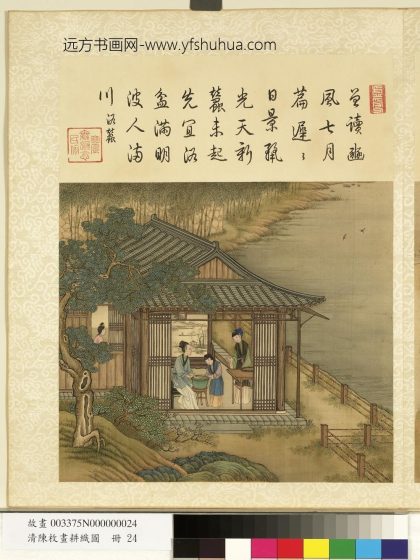 远方书画网-www.yfshuhua.com
曾讀豳
風七月
篇遲〻
日景麗
光天新
蠶未起
先宜浴
盆滿明
波人滿
川 浴蠶
故畫 003375N000000024
清陳枚畫耕織圖 冊 24